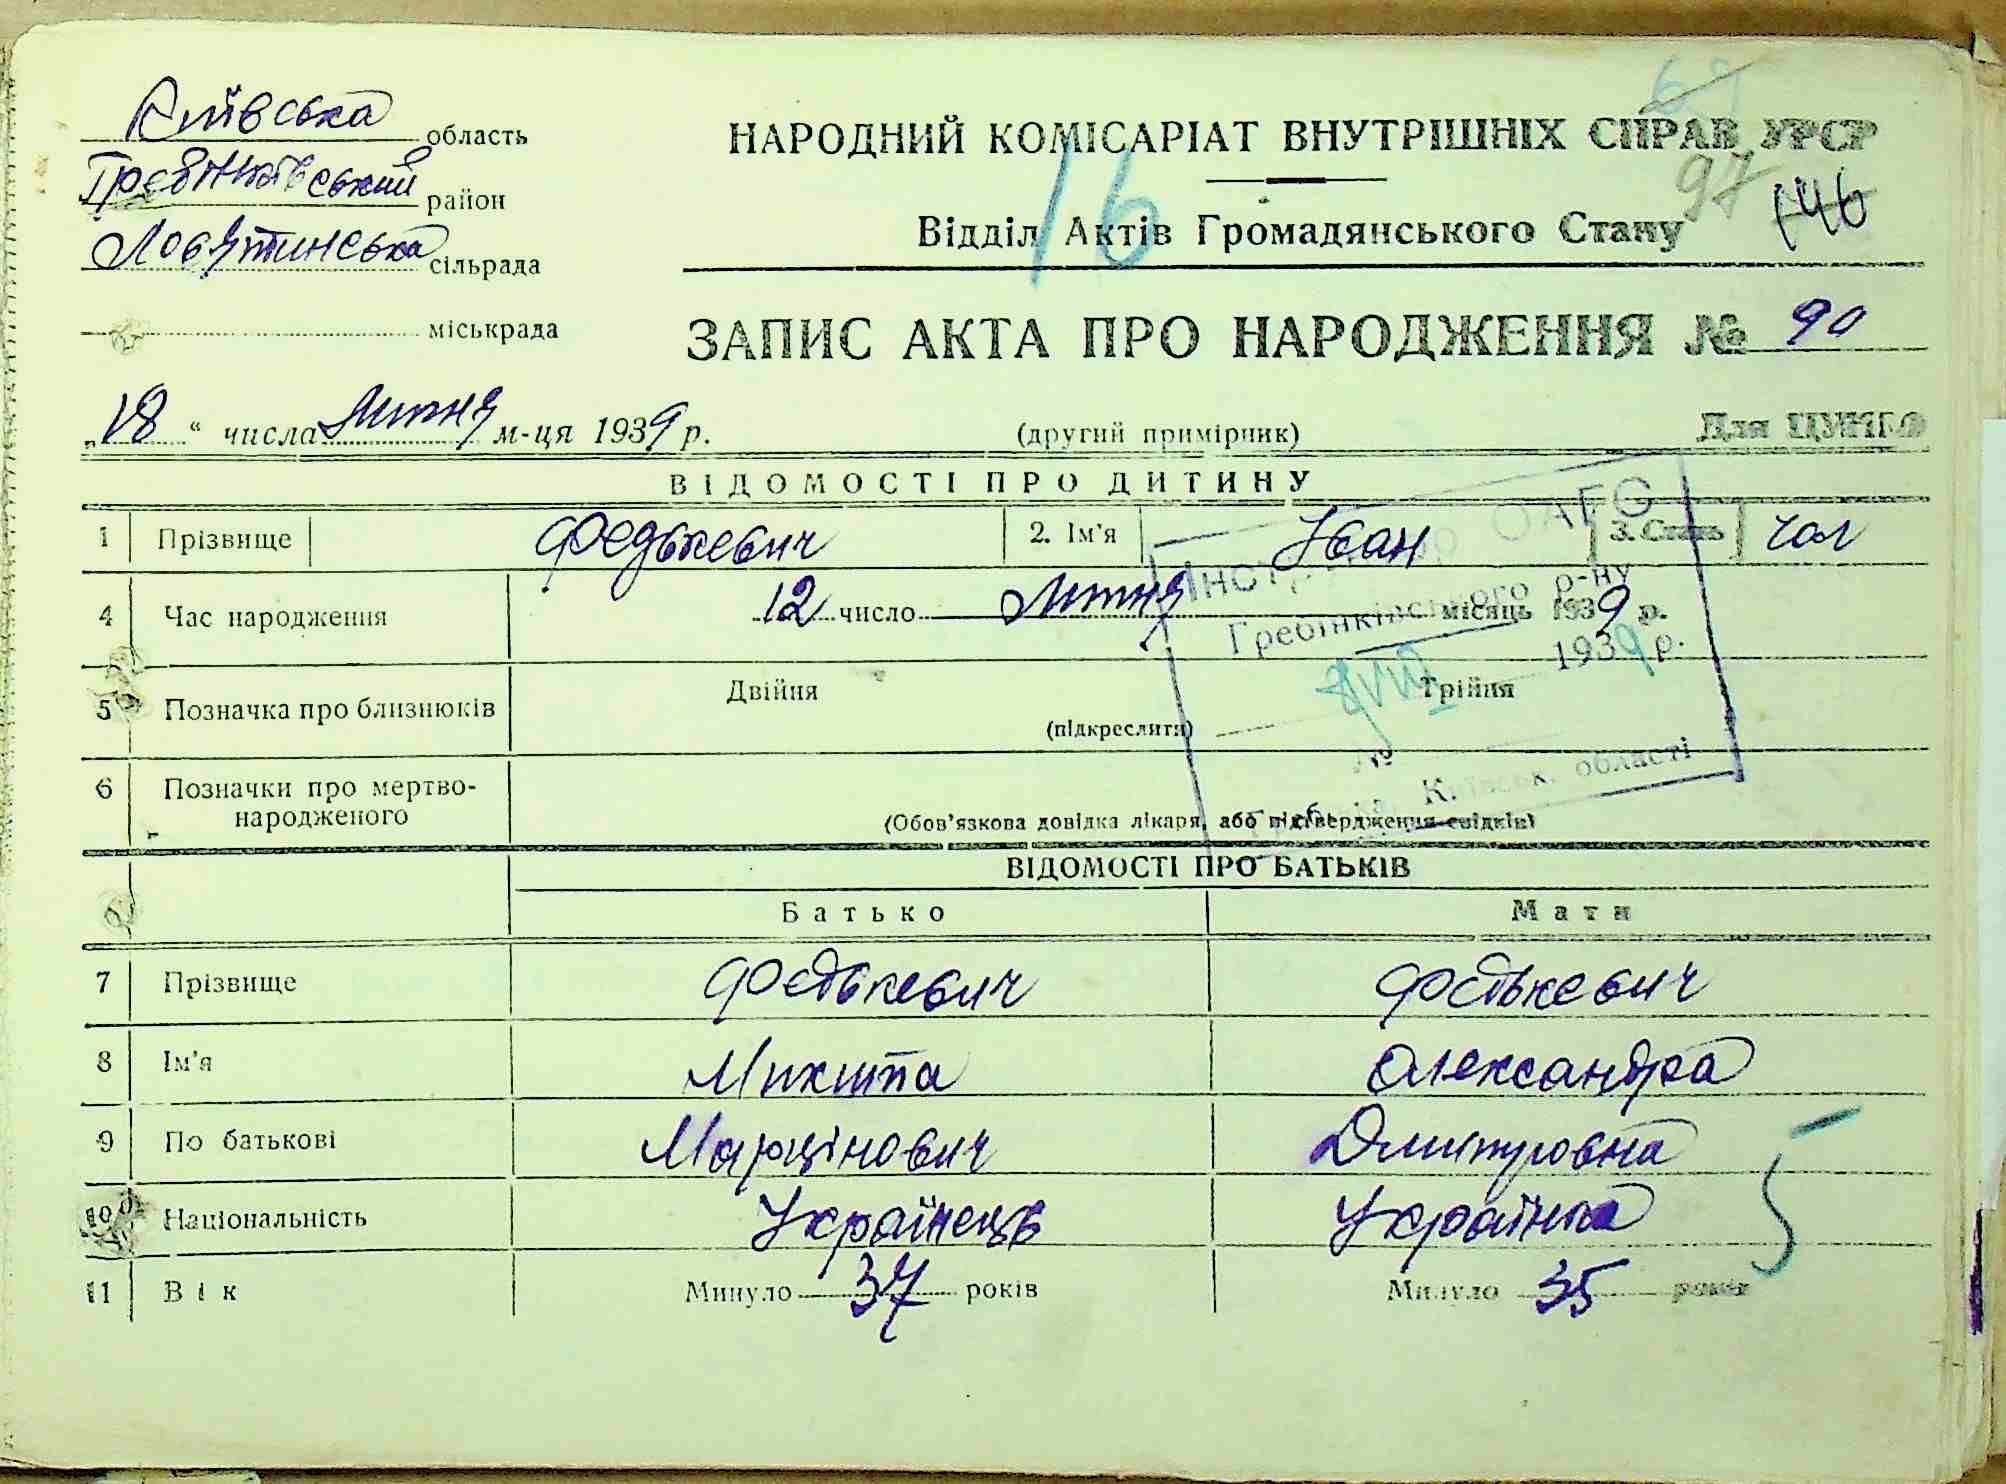 Київська область
Гребінківський район
Лосятинська сільрада
міськрада
69
НАРОДНИЙ КОМІСАРІАТ ВНУТРІШНІХ СПРАВ УРСР
16
97
146
Відділ Актів Громадянського Стану
ЗАПИС АКТА ПРО НАРОДЖЕННЯ № 90
„18“ числа липня м-ця 1939 р.
(другий примірник)
Для ЦУНГО
ВІДОМОСТІ ПРО ДИТИНУ
1 Прізвище Федькевич 2. Ім'я Іван 3. Стать чол
4 Час народження 12 число липня місяць 1939 р.
5 Позначка про близнюків Двійня Трійня
(підкреслити)
6 Позначки про мертво-
народженого
(Обов'язкова довідка лікаря, або підтвердження свідків)
ОАГС
Гребінківського р-ну
8/VIII 1939 р.
№
Київськ. області
ВІДОМОСТІ ПРО БАТЬКІВ
Батько Мати
7 Прізвище Федькевич Федькевич
8 Ім'я Микита Олександра
9 По батькові Марцінович Дмитровна
10 Національність Українець Українка
11 Вік Минуло 37 років Минуло 35 років
5